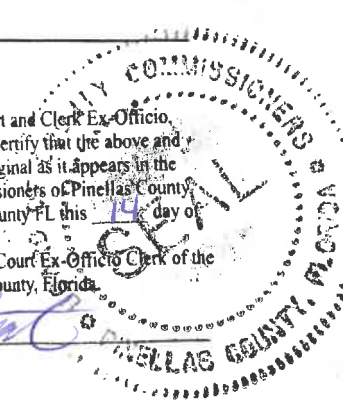 rt and Clerk Ex-Officio,
ertify that the above and
ginal as it appears in the
sioners of Pinellas County
unty FL this 14 day of
Court Ex-Officio Clerk of the
ounty, Florida.
TY COMMISSIONERS
SEAL
PINELLAS COUNTY, FLORIDA